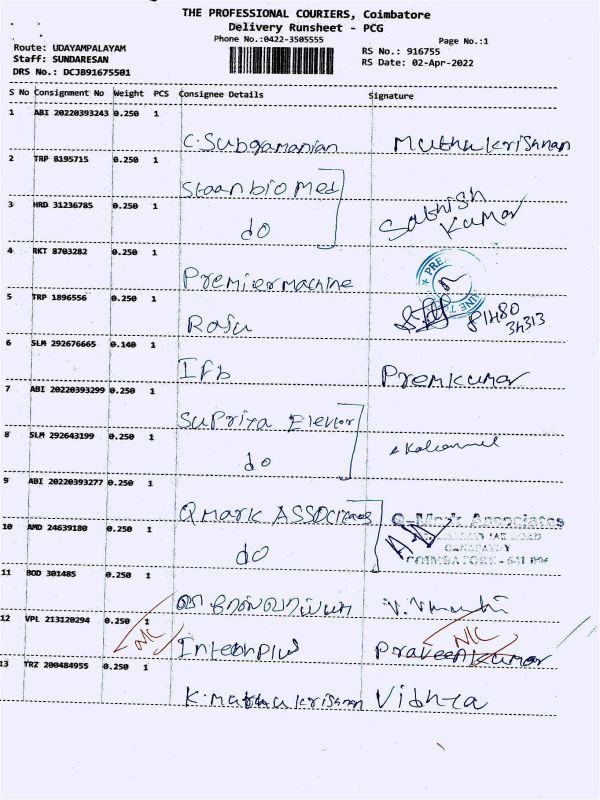 THE PROFESSIONAL COURIERS, Coimbatore
Delivery Runsheet - PCG
Phone No.:0422-3505555
Page No.:1
Route: UDAYAMPALAYAM
RS No.: 916755
Staff: SUNDARESAN
RS Date: 02-Apr-2022
DRS No.: DCJB91675501
S No Consignment No Weight PCS Consignee Details Signature
1 ABI 20220393243 0.250 1
C. Subramanian Muthukrishnan
2 TRP 8195715 0.250 1
Staanbio Med
3 HRD 31236785 0.250 1
do Sathish Kumar
4 RKT 8703282 0.250 1
Premiermachine
5 TRP 1896556 0.250 1
Raju
6 SLM 292676665 0.140 1
Ifb Premkumar
7 ABI 20220393299 0.250 1
Supriya Elevtor
8 SLM 292643199 0.250 1
do
9 ABI 20220393277 0.250 1
Q Mark ASSOCIates Q-Mark Associates
10 AMD 24639180 0.250 1
do COIMBATORE
11 BOD 301485 0.250 1
12 VPL 213120294 0.250 1
N/C N/C
Intechplus Praveenkumar
13 TRZ 200484955 0.250 1
K. Muthukrishnan Vidhya